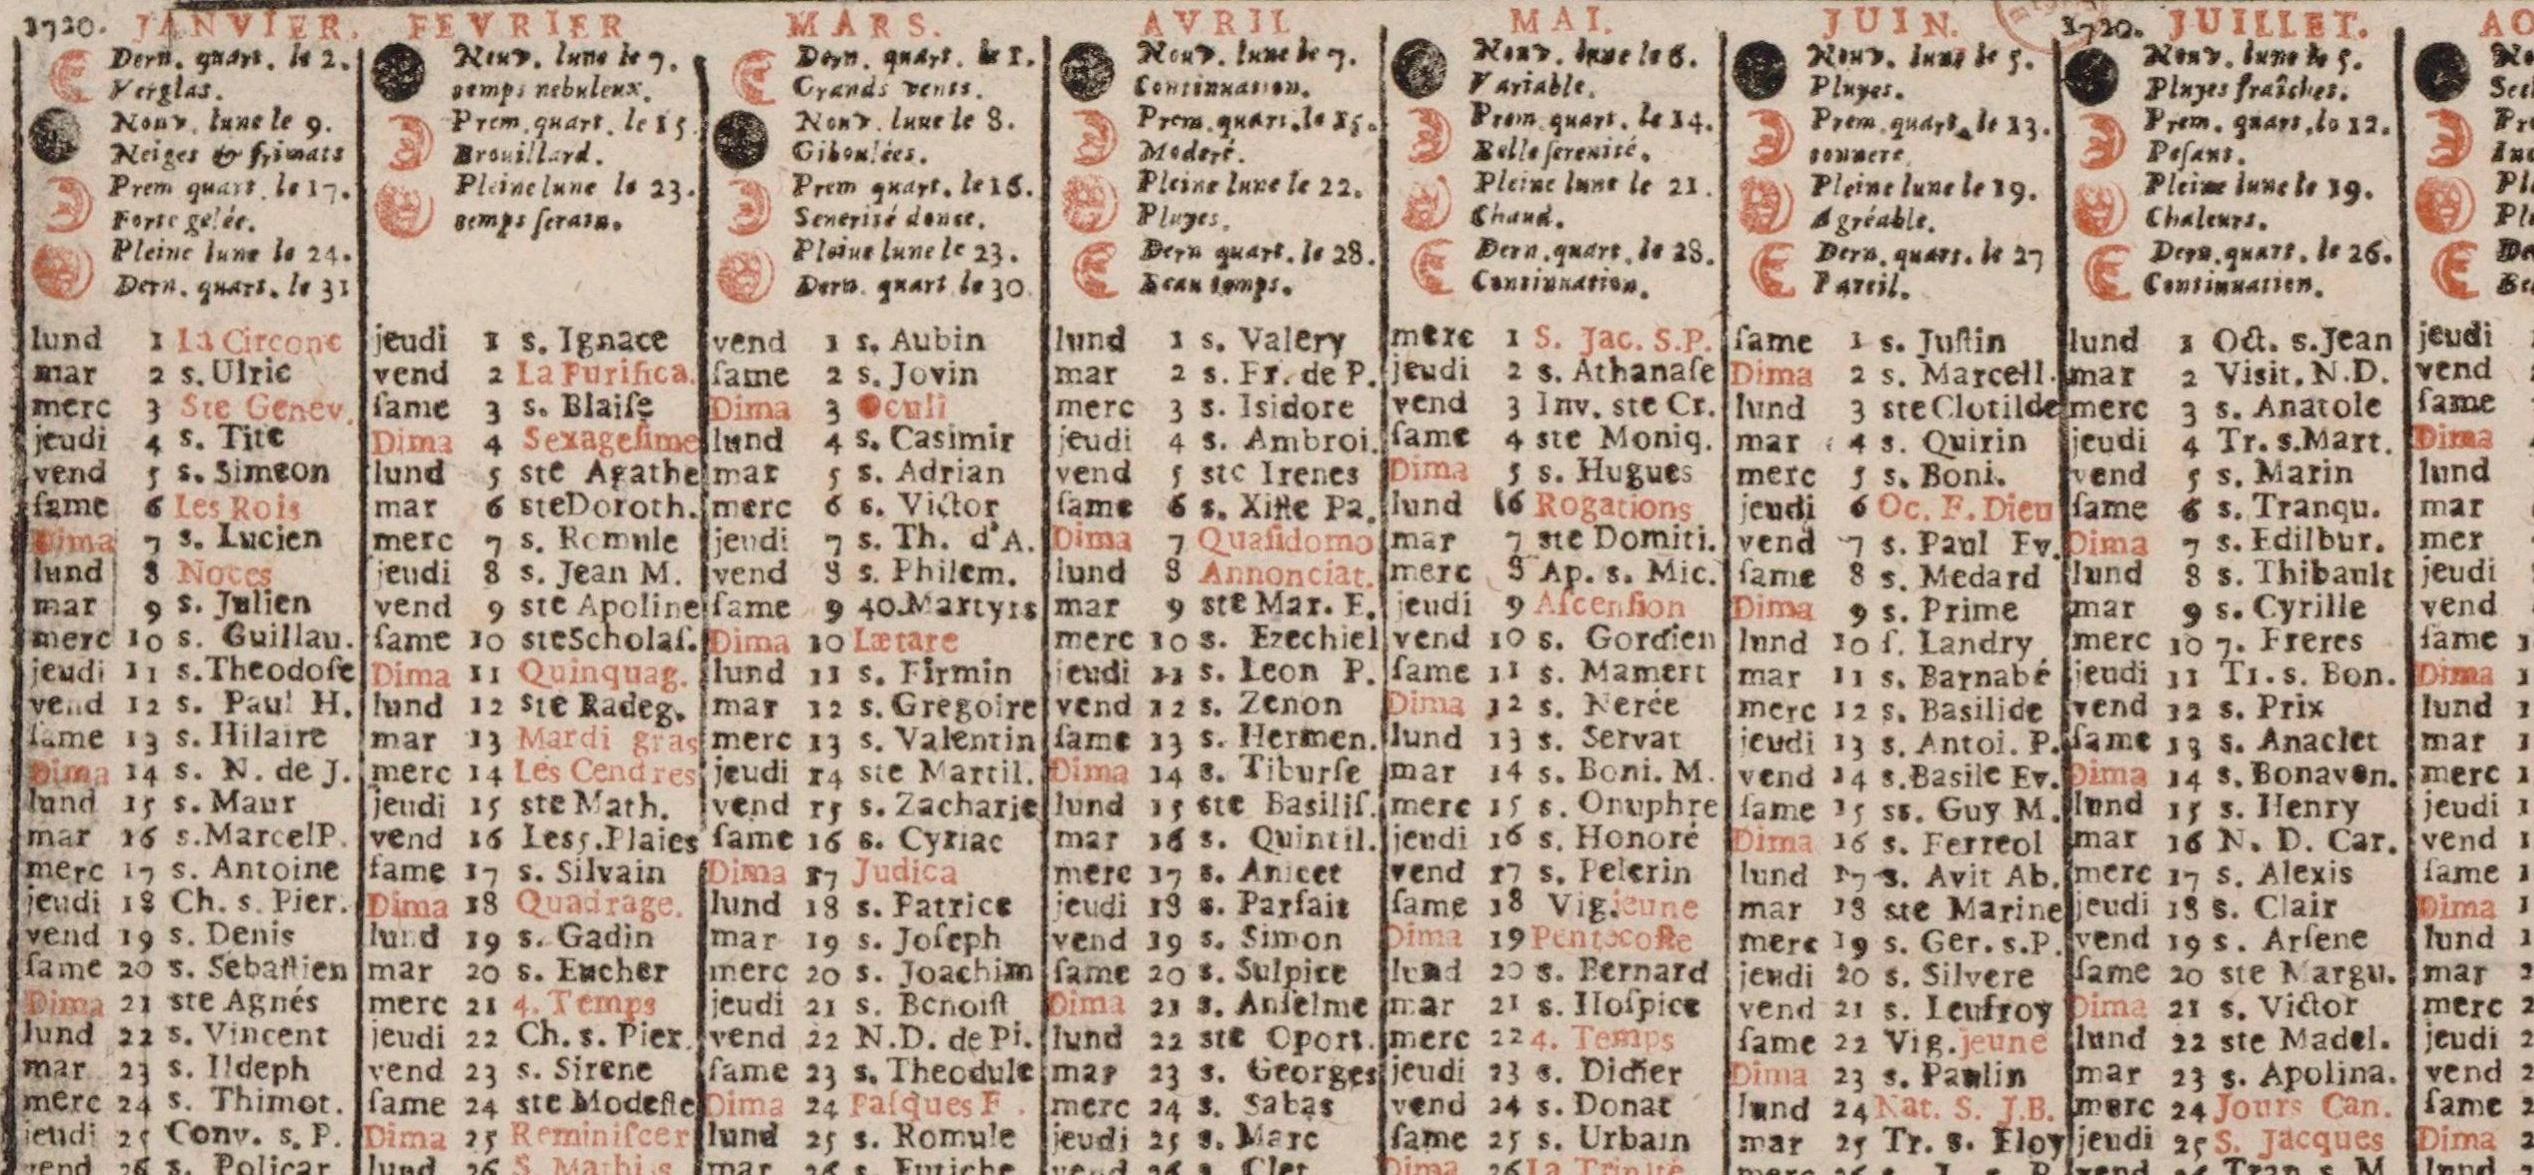 1720. JANVIER.
Dern. quart. le 2.
Verglas.
Nouv. lune le 9.
Neiges & frimats
Prem quart. le 17.
Forte gelée.
Pleine lune le 24.
Dern. quart. le 31
lund 1 La Circonc
mar 2 s. Ulric
merc 3 Ste Genev.
jeudi 4 s. Tite
vend 5 s. Simeon
ſame 6 Les Rois
Dima 7 s. Lucien
lund 8 Noces
mar 9 s. Julien
merc 10 s. Guillau.
jeudi 11 s. Theodoſe
vend 12 s. Paul H.
ſame 13 s. Hilaire
Dima 14 s. N. de J.
lund 15 s. Maur
mar 16 s. Marcel P.
merc 17 s. Antoine
jeudi 18 Ch. s. Pier.
vend 19 s. Denis
ſame 20 s. Sebaſtien
Dima 21 ste Agnés
lund 22 s. Vincent
mar 23 s. Ildeph
merc 24 s. Thimot.
jeudi 25 Conv. s. P.
vend 26 s. Policar
FEVRIER
Nouv. lune le 7.
temps nebuleux.
Prem. quart. le 15.
Brouillard.
Pleine lune le 23.
temps ſerain.
jeudi 1 s. Ignace
vend 2 La Purifica.
ſame 3 s. Blaiſe
Dima 4 Sexageſime
lund 5 ste Agathe
mar 6 ste Doroth.
merc 7 s. Romule
jeudi 8 s. Jean M.
vend 9 ste Apoline
ſame 10 ste Scholaſ.
Dima 11 Quinquag.
lund 12 ste Radeg.
mar 13 Mardi gras
merc 14 Les Cendres
jeudi 15 ste Math.
vend 16 Les 5. Plaies
ſame 17 s. Silvain
Dima 18 Quadrage.
lund 19 s. Gadin
mar 20 s. Eucher
merc 21 4. Temps
jeudi 22 Ch. s. Pier.
vend 23 s. Sirene
ſame 24 ste Modeſte
Dima 25 Reminiſcer
lund 26 S. Mathias
MARS.
Dern. quart. le 1.
Grands vents.
Nouv. lune le 8.
Giboulées.
Prem quart. le 16.
Senerité douce.
Pleine lune le 23.
Dern. quart. le 30.
vend 1 s. Aubin
ſame 2 s. Jovin
Dima 3 Oculi
lund 4 s. Casimir
mar 5 s. Adrian
merc 6 s. Victor
jeudi 7 s. Th. d'A.
vend 8 s. Philem.
ſame 9 40. Martyrs
Dima 10 Lætare
lund 11 s. Firmin
mar 12 s. Gregoire
merc 13 s. Valentin
jeudi 14 ste Martil.
vend 15 s. Zacharie
ſame 16 s. Cyriac
Dima 17 Judica
lund 18 s. Patrice
mar 19 s. Joſeph
merc 20 s. Joachim
jeudi 21 s. Benoiſt
vend 22 N.D. de Pi.
ſame 23 s. Theodule
Dima 24 Paſques F.
lund 25 s. Romule
mar 26 s. Eutiche
AVRIL
Nouv. lune le 7.
Continuation.
Prem. quart. le 15.
Moderé.
Pleine lune le 22.
Pluyes.
Dern quart. le 28.
Beau temps.
lund 1 s. Valery
mar 2 s. Fr. de P.
merc 3 s. Isidore
jeudi 4 s. Ambroi.
vend 5 ste Irenes
ſame 6 s. Xiſte Pa.
Dima 7 Quaſidomo
lund 8 Annonciat.
mar 9 ste Mar. E.
merc 10 s. Ezechiel
jeudi 11 s. Leon P.
vend 12 s. Zenon
ſame 13 s. Hermen.
Dima 14 s. Tiburſe
lund 15 ste Basiliſ.
mar 16 s. Quintil.
merc 17 s. Anicet
jeudi 18 s. Parfait
vend 19 s. Simon
ſame 20 s. Sulpice
Dima 21 s. Anſelme
lund 22 ste Oport.
mar 23 s. Georges
merc 24 s. Sabas
jeudi 25 s. Marc
vend 26 s. Clet
MAI.
Nouv. lune le 6.
Variable.
Prem quart. le 14.
Belle ſerenité.
Pleine lune le 21.
Chaud.
Dern. quart. le 28.
Continuation.
merc 1 S. Jac. S.P.
jeudi 2 s. Athanaſe
vend 3 Inv. ste Cr.
ſame 4 ste Moniq.
Dima 5 s. Hugues
lund 6 Rogations
mar 7 ste Domiti.
merc 8 Ap. s. Mic.
jeudi 9 Aſcenſion
vend 10 s. Gordien
ſame 11 s. Mamert
Dima 12 s. Nerée
lund 13 s. Servat
mar 14 s. Boni. M.
merc 15 s. Onuphre
jeudi 16 s. Honoré
vend 17 s. Pelerin
ſame 18 Vig. jeune
Dima 19 Pentecoſte
lund 20 s. Bernard
mar 21 s. Hoſpice
merc 22 4. Temps
jeudi 23 s. Didier
vend 24 s. Donat
ſame 25 s. Urbain
Dima 26 La Trinité
JUIN.
Nouv. lune le 5.
Pluyes.
Prem. quart. le 13.
tonnere
Pleine lune le 19.
Agréable.
Dern. quart. le 27
Pareil.
ſame 1 s. Juſtin
Dima 2 s. Marcell.
lund 3 ste Clotilde
mar 4 s. Quirin
merc 5 s. Boni.
jeudi 6 Oc. F. Dieu
vend 7 s. Paul Ev.
ſame 8 s. Medard
Dima 9 s. Prime
lund 10 ſ. Landry
mar 11 s. Barnabé
merc 12 s. Basilide
jeudi 13 s. Antoi. P.
vend 14 s. Basile Ev.
ſame 15 ss. Guy M.
Dima 16 s. Ferreol
lund 17 s. Avit Ab.
mar 18 ste Marine
merc 19 s. Ger. s. P.
jeudi 20 s. Silvere
vend 21 s. Leufroy
ſame 22 Vig. jeune
Dima 23 s. Paulin
lund 24 Nat. S. J.B.
mar 25 Tr. s. Eloy
1720. JUILLET.
Nouv. lune le 5.
Pluyes fraîches.
Prem. quart. le 12.
Peſant.
Pleine lune le 19.
Chaleurs.
Dern. quart. le 26.
Continuation.
lund 1 Oct. s. Jean
mar 2 Visit. N.D.
merc 3 s. Anatole
jeudi 4 Tr. s. Mart.
vend 5 s. Marin
ſame 6 s. Tranqu.
Dima 7 s. Edilbur.
lund 8 s. Thibault
mar 9 s. Cyrille
merc 10 7. Freres
jeudi 11 Tr. s. Bon.
vend 12 s. Prix
ſame 13 s. Anaclet
Dima 14 s. Bonaven.
lund 15 s. Henry
mar 16 N. D. Car.
merc 17 s. Alexis
jeudi 18 s. Clair
vend 19 s. Arſene
ſame 20 ste Margu.
Dima 21 s. Victor
lund 22 ste Madel.
mar 23 s. Apolina.
merc 24 Jours Can.
jeudi 25 S. Jacques
vend 26 Tran. s. M
AO
jeudi
vend
ſame
Dima
lund
mar
mer
jeudi
vend
ſame
Dima
lund
mar
merc
jeudi
vend
ſame
Dima
lund
mar
merc
jeudi
vend
ſame
Dima
lund